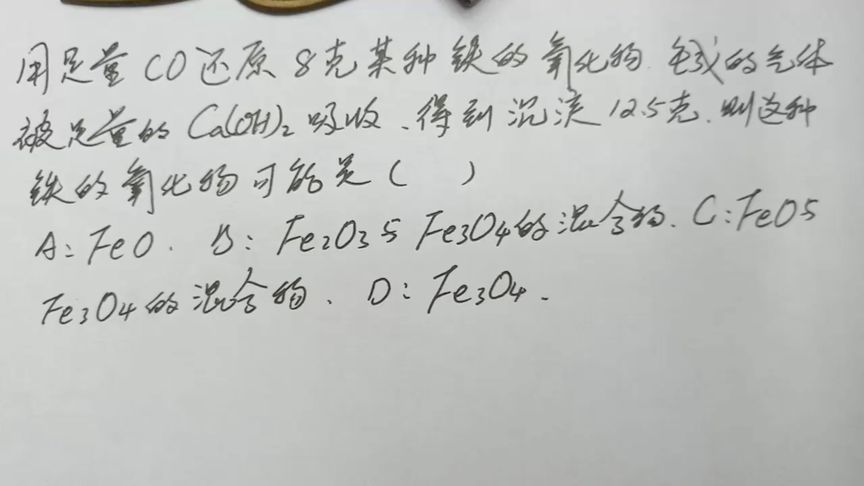 用足量CO还原8克某种铁的氧化物.生成的气体
被足量的Ca(OH)₂吸收、得到沉淀12.5克.则这种
铁的氧化物可能是( )
A:FeO. B: Fe₂O₃与Fe₃O₄的混合物. C:FeO与
Fe₃O₄的混合物. D:Fe₃O₄.